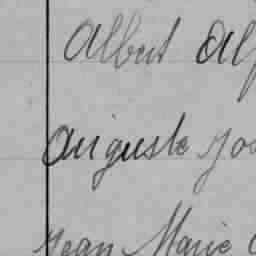 Albert Alf
Auguste Jos
Jean Marie